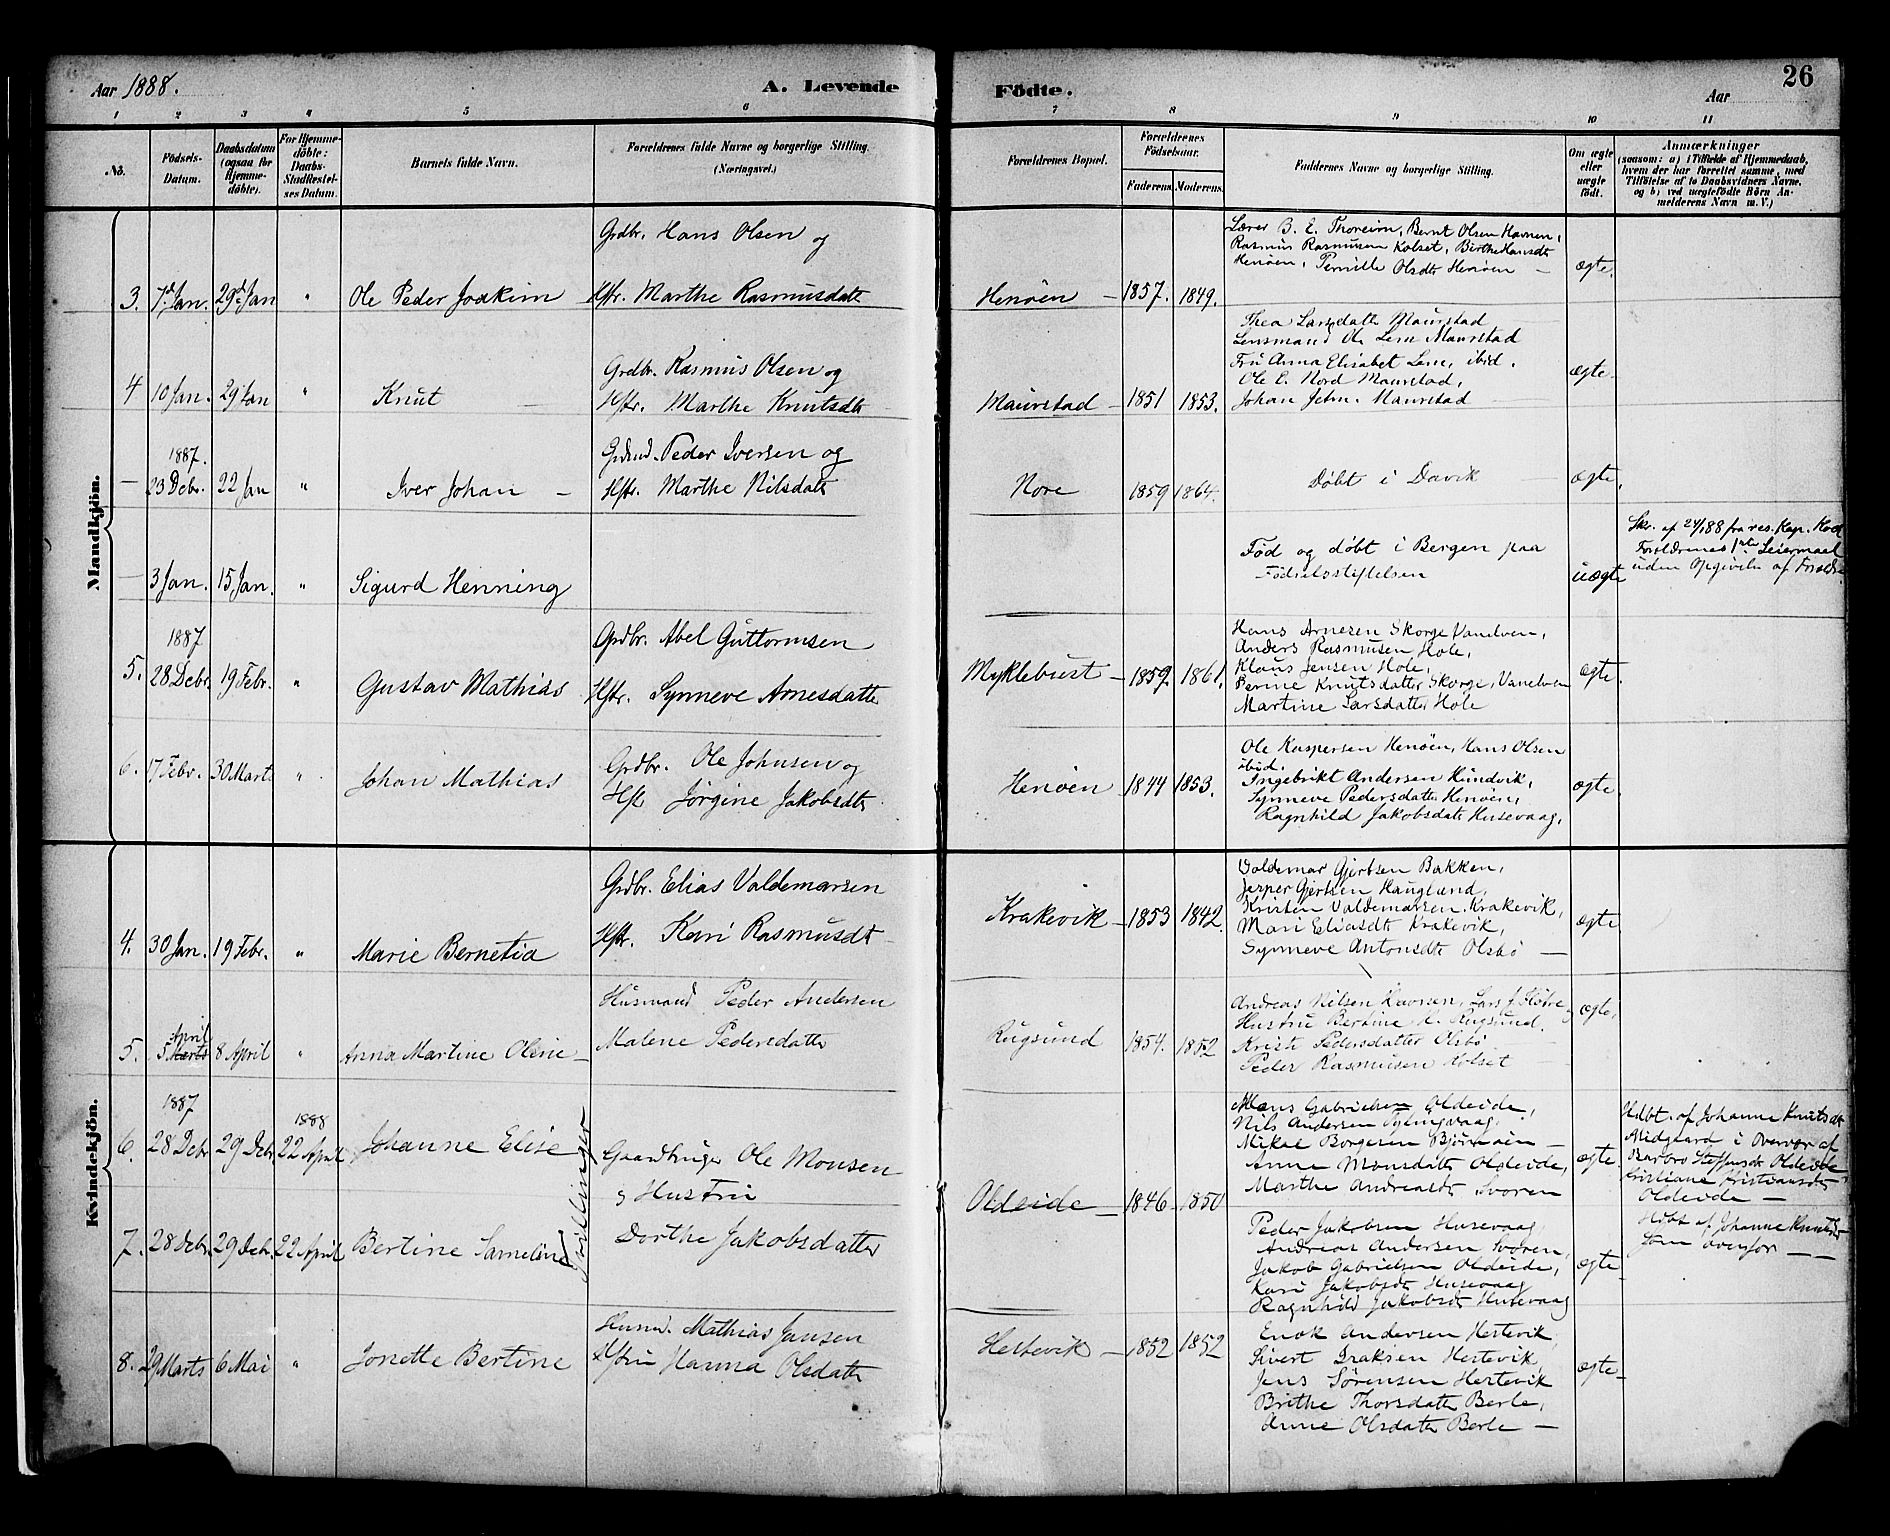 Aar 1888.
A. Levende
Födte.
Aar
26
1 2 3 4 5 6 7 8 9 10 11
No.
Födsels-
Datum.
Daabsdatum
(ogsaa for
Hjemme-
döbte).
For Hjemme-
döbte:
Daabs-
Stadfæstel-
ses Datum.
Barnets fulde Navn.
Forældrenes fulde Navne og borgerlige Stilling.
(Næringsvei.)
Forældrenes Bopæl.
Forældrenes
Födselsaar.
Faderens. Moderens.
Faddernes Navne og borgerlige Stilling.
Om ægte
eller
uægte
født.
Anmærkninger
(saasom: a) i Tilfælde af Hjemmedaab,
hvem der har forrettet samme, med
Tilföielse af to Daabsvidners Navne,
og b) ved uægtefödte Börn An-
melderens Navn m. V.)
Mandkjön.
3. 7d Jan. 29d Jan " Ole Peder Joakim
Grdbr. Hans Olsen og
Hstr. Marthe Rasmusdatt
Henöen 1857. 1849.
Lærer B. E. Thoreim, Bernt Olsen Havnen,
Rasmus Rasmusen Kolset, Birthe Hansdtr
Henöen, Pernille Olsdtr Henöen
ægte.
4 10 Jan. 29 Jan " Knut
Grdbr. Rasmus Olsen og
Hstr. Marthe Knutsdtr
Maurstad 1851 1853.
Thea Larsdatt Maurstad
Lensmand Ole Lem Maurstad
Fru Anna Elisabet Lem, ibid.
Ole E. Nord Maurstad,
Johan Jetm. Maurstad
ægte.
1887.
— 23 Debr. 22 Jan " Iver Johan —
Grdmd. Peder Iversen og
Hstr. Marthe Nilsdatt
Nore 1859 1864.
Döbt i Davik
ægte,
— 3 Jan. 15 Jan. " Sigurd Henning
Föd og döbt i Bergen paa
Födselsstiftelsen
uægte
Skr. af 24/1 88 fra res. Kap.
Forældrenes 1ste Leiermaal
uden Opgivelse af Forældre
1887
5. 28 Debr. 19 Febr. " Gustav Mathias
Grdbr. Abel Guttormsen
Hstr. Synneve Arnesdatter
Myklebust 1859. 1861.
Hans Arnesen Skorge Vanelven,
Anders Rasmusen Hole,
Klaus Jensen Hole,
Perine Knutsdatter Skorge, Vanelven
Martine Larsdatter Hole
ægte.
6. 17 Febr. 30 Marts " Johan Mathias
Grdbr. Ole Johnsen og
Hst Jörgine Jakobsdtr.
Henöen 1844 1853.
Ole Kaspersen Henöen, Hans Olsen
ibid.
Ingebrikt Andersen Hundvik,
Synneve Pedersdatter Henöen,
Ragnhild Jakobsdatt Husevaag,
ægte.
Kvindekjön.
4. 30 Jan. 19 Febr. " Marie Bernetia
Grdbr. Elias Valdemarsen
Hstr. Kari Rasmusdt
Krakevik 1853 1842.
Valdemar Gjertsen Bakken,
Jesper Gjertsen Haugland,
Kristen Valdemarsen Krakevik,
Mari Eliasdt Krakevik,
Synneve Antonsdtr Olsbö —
ægte
April
5. 5 Marts 8 April " Anna Martine Oline
Husmand Peder Andersen
Malene Pedersdatter
Rugsund 1854. 1852
Andreas Nilsen Havnen, Lars J. Flötre
Hustru Bertine H. Rugsund.
Kristi Pedersdatter Olsbö
Peder Rasmusen Kolset
ægte,
1887 1888
6. 28 Debr 29 Debr. 22 April Johanne Elise
Tvillinger
Gaardbruger Ole Monsen
og Hustru
Dorthe Jakobsdatter
Oldeide — 1846 1850
Mons Gabrielsen Oldeide,
Nils Andersen Tytingvaag,
Mikal Borgesen Björnöen —
Anne Monsdatter Oldeide,
Marthe Andreasdt Svoren
ægte
Hdbt. af Johanne Knutsdtr
Midgaard i Overvær af
Barbro Steffensdt Oldeide
Kristiane Kristiansdtr
Oldeide —
7. 28 Debr. 29 Debr. 22 April Bertine Sameline
Peder Jakobsen Husevaag,
Andreas Andersen Svoren,
Jakob Gabrielsen Oldeide,
Kari Jakobsdt Husevaag
Ragnhild Jakobsdt Husevaag
ægte
Hdbt af Johanne Knutsdtr
som ovenfor — —
8. 29 Marts 6 Mai " Jonette Bertine
Husmd. Mathias Jansen
Hstru Hanna Olsdatter
Hestevik 1852 1852
Enok Andersen Hestevik,
Sivert Isaksen Hestevik,
Jens Sörensen Hestevik
Brithe Thorsdatter Berle,
Anne Olsdatter Berle —
ægte